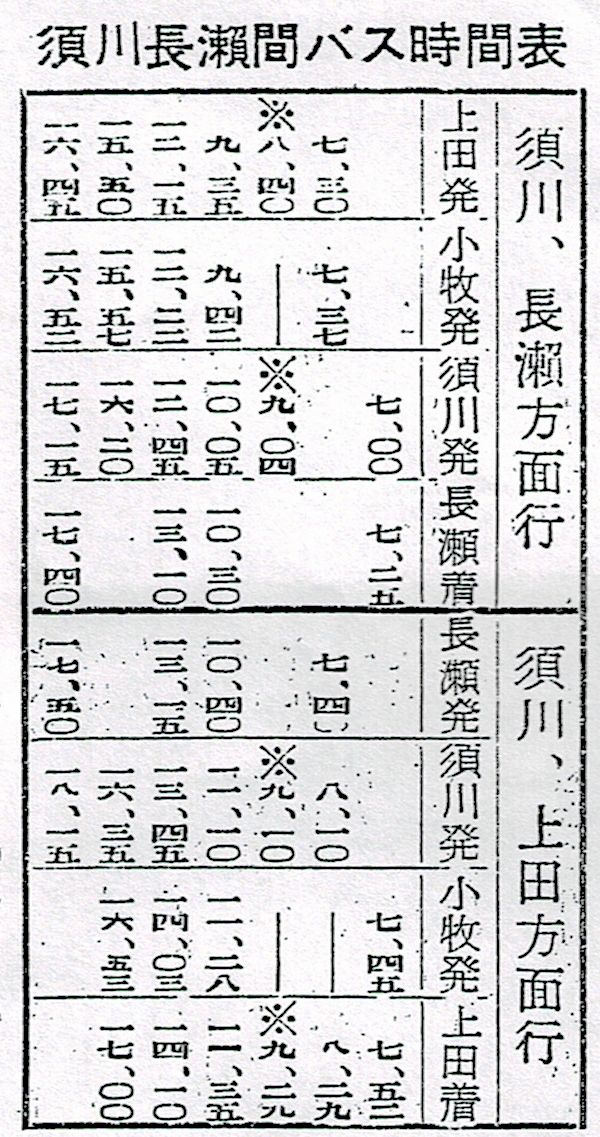 須川長瀨間バス時間表
須川、長瀨方面行
上田発 小牧発 須川発 長瀬着
七、〇〇 七、二五
七、三〇 七、三七
※八、四〇 ｜ ※九、〇四
九、三五 九、四二 一〇、〇五 一〇、三〇
一二、一五 一二、二二 一二、四五 一三、一〇
一五、五〇 一五、五七 一六、二〇
一六、四五 一六、五二 一七、一五 一七、四〇
須川、上田方面行
長瀬発 須川発 小牧発 上田着
七、四五 七、五二
七、四〇 八、一〇 ｜ 八、二九
※九、一〇 ｜ ※九、二九
一〇、四〇 一一、一〇 一一、二八 一一、三五
一三、一五 一三、四五 一四、〇三 一四、一〇
一六、三五 一六、五三 一七、〇〇
一七、五〇 一八、一五